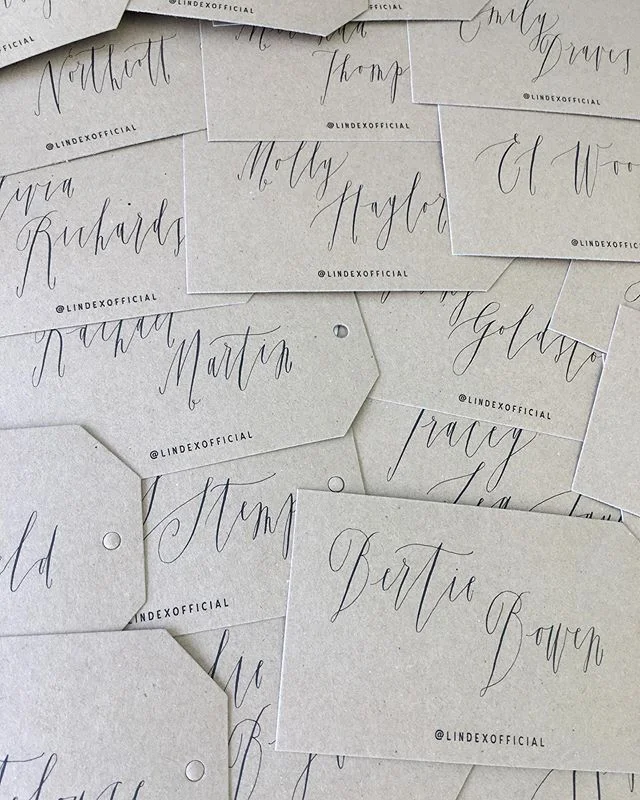 @LINDEXOFFICIAL
Northcott
@LINDEXOFFICIAL
Thomp
@LINDEXOFFICIAL
Emily
Draves
@LINDEXOFFICIAL
Richards
@LINDEXOFFICIAL
Molly
Haylor
@LINDEXOFFICIAL
El Woo
@LINDEXOFFICIAL
Rachael
Martin
@LINDEXOFFICIAL
Goldsto
@LINDEXOFFICIAL
Tracey
eld
Stemp
LINDEXOFFICIAL
Bertie
Bowen
@LINDEXOFFICIAL